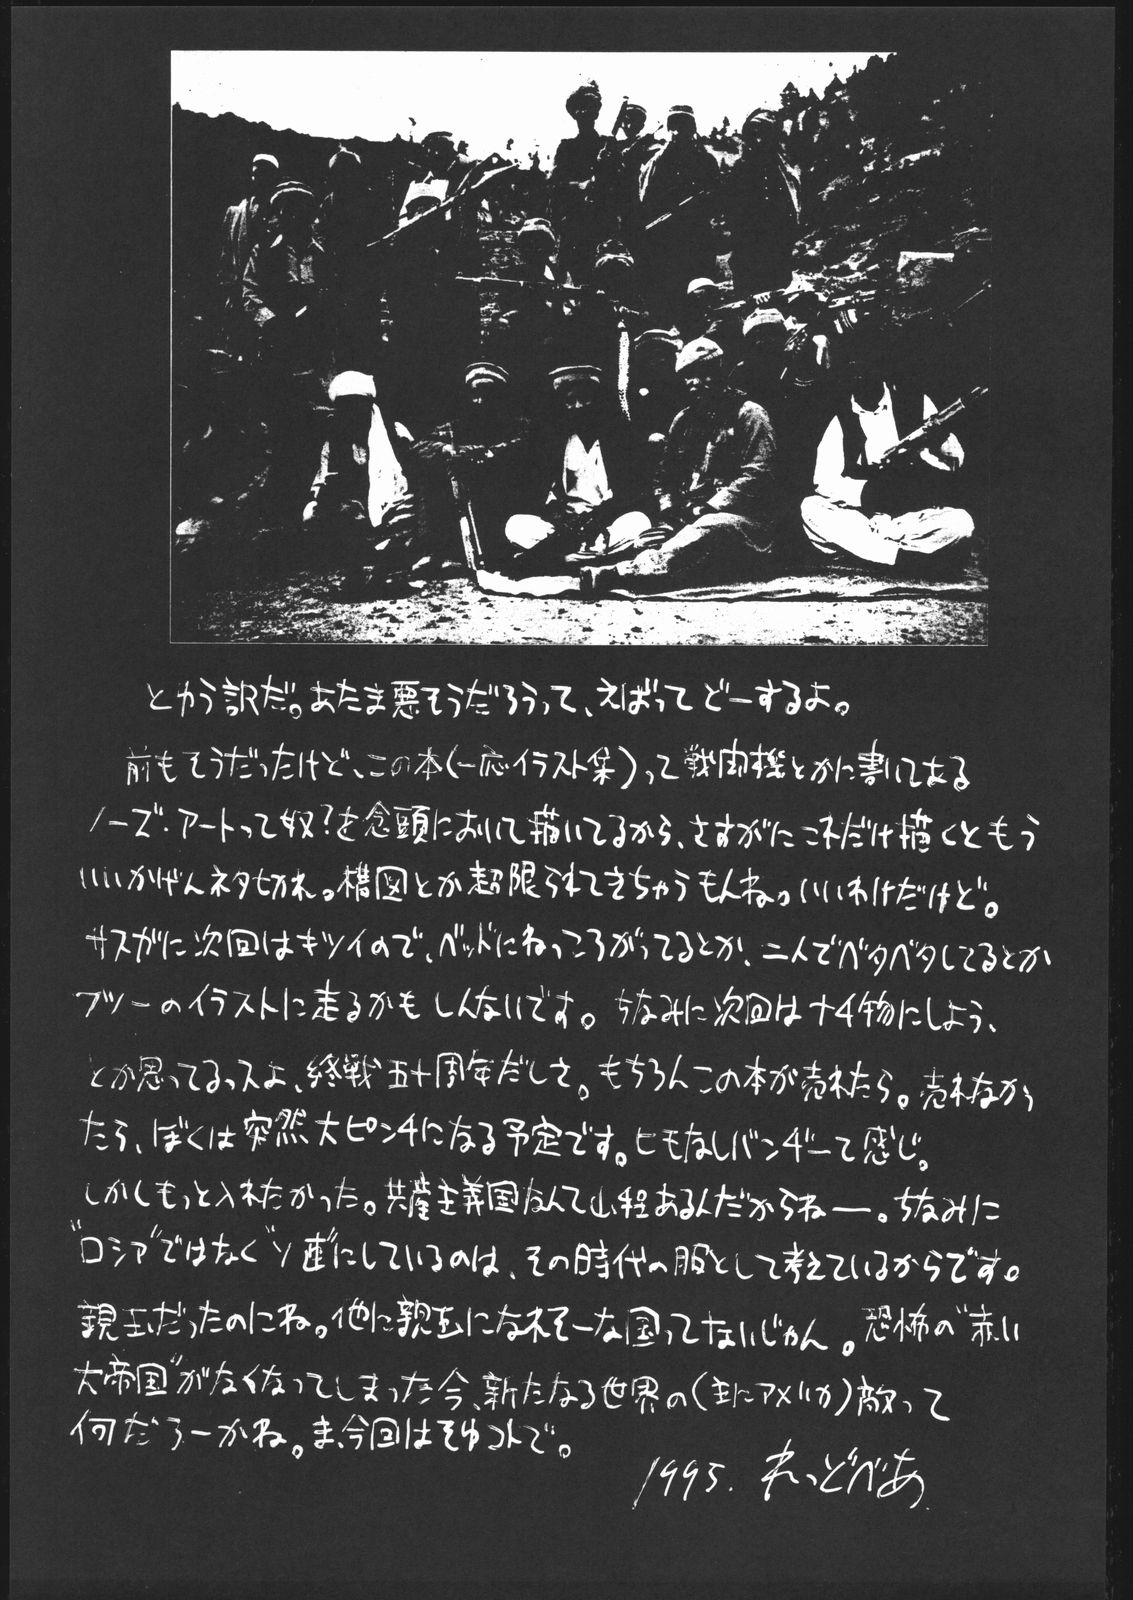 とゆう訳だ。あたま悪そうだろうって、えばってどーするよ。
前もそうだったけど、この本(一応イラスト集)って戦闘機とかに書いてある
ノーズ・アートって奴?を念頭において描いてるから、さすがにこれだけ描くともう
いいかげんネタ切れ。構図とか超限られてきちゃうもんね。いいわけだけど。
サスガに次回はキツイので、ベッドにねっころがってるとか、二人でベタベタしてるとか
フツーのイラストに走るかもしんないです。ちなみに次回はナチ物にしよう、
とか思ってるっスよ、終戦五十周年だしさ。もちろんこの本が売れたら。売れなかっ
たら、ぼくは突然大ピンチになる予定です。ヒモなしバンジーて感じ。
しかしもっと入れたかった。共産主義国なんて山程あるんだからねー。ちなみに
"ロシア"ではなく"ソ連"にしているのは、その時代の服として考えているからです。
親玉だったのにね。他に親玉になれそーな国ってないじゃん。恐怖の"赤い
大帝国"がなくなってしまった今、新たなる世界の(主にアメリカ)敵って
何だろーかね。ま、今回はそゆコトで。
1995. れっどべあ